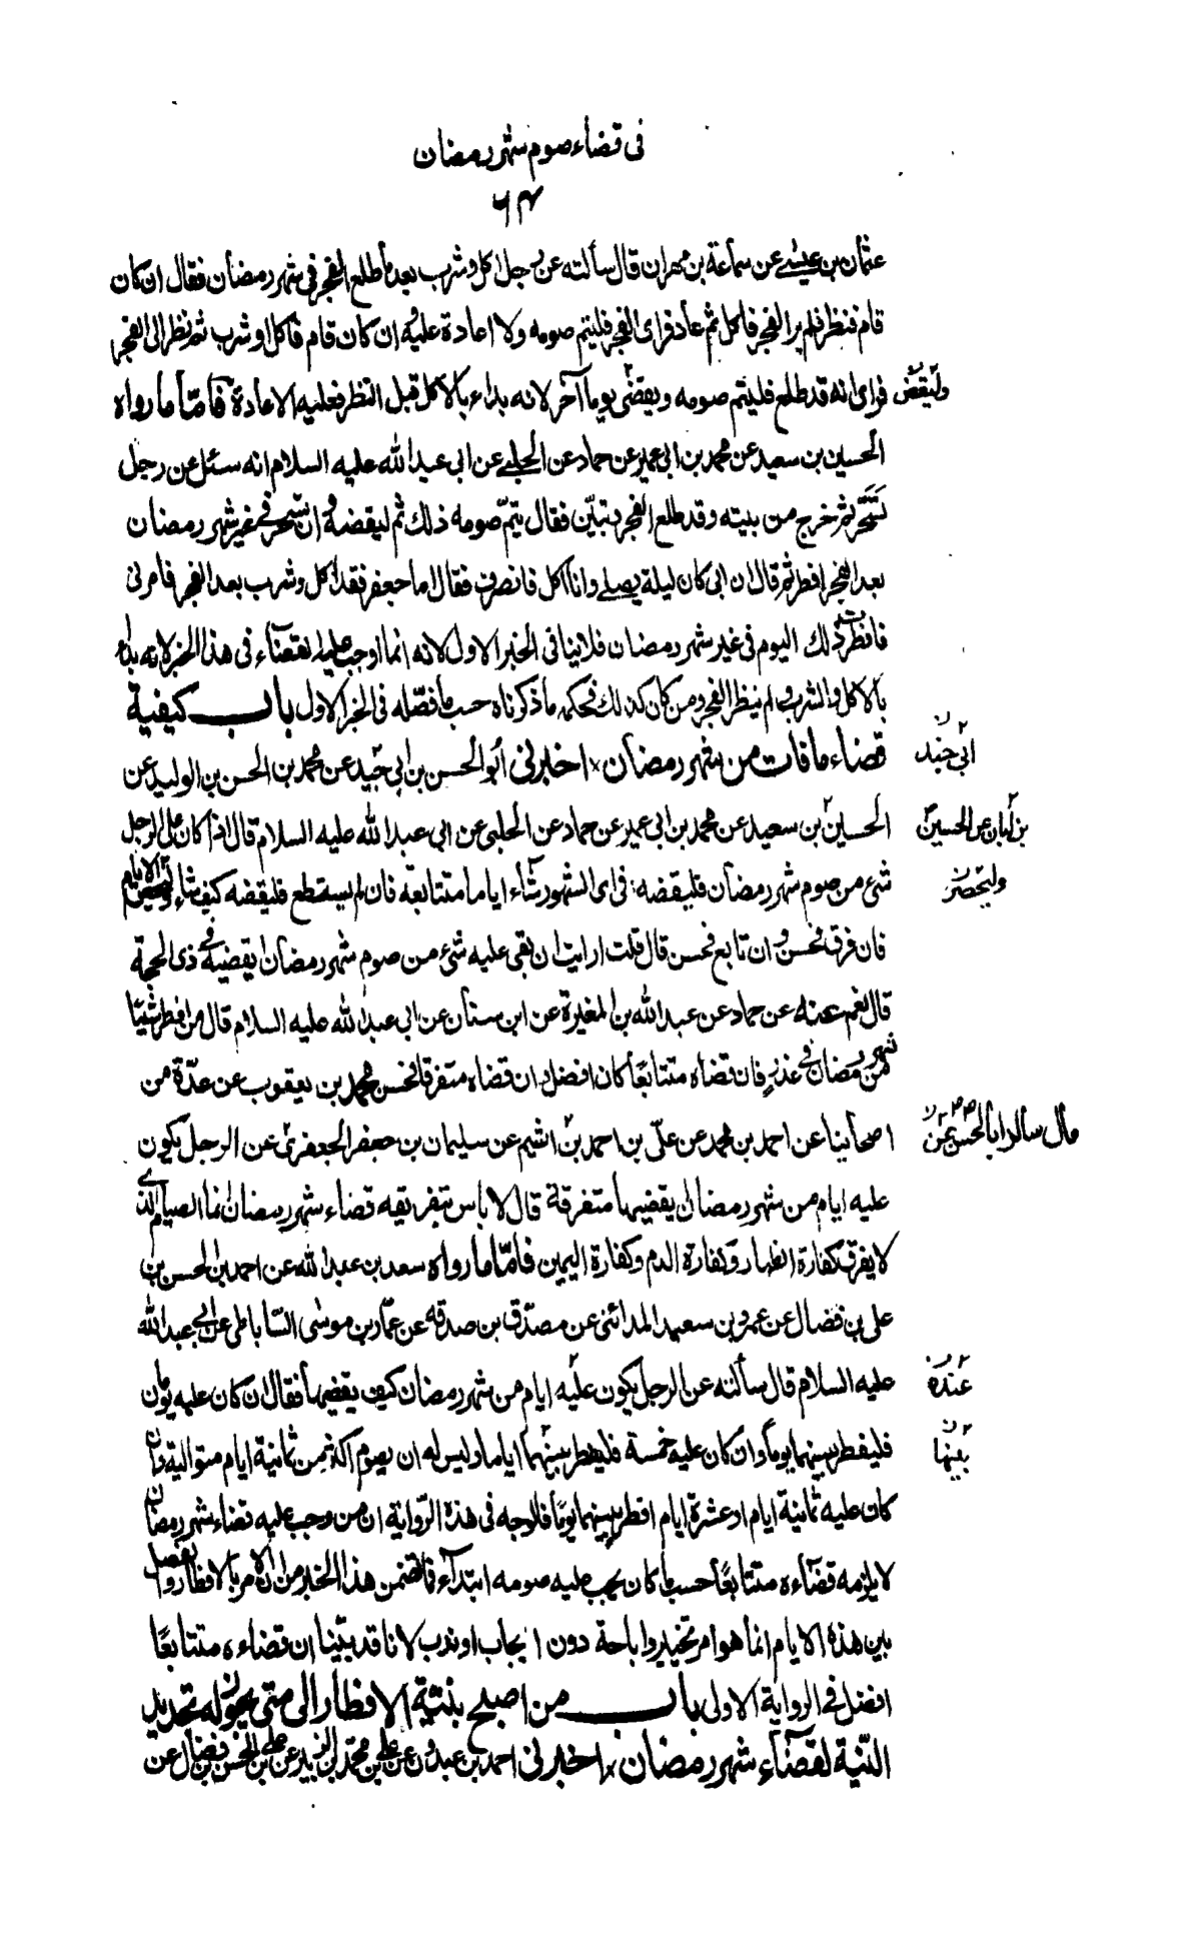 فی قضاء صوم شهر رمضان
۶۴
عثمان بن عیسی عن سماعة بن مهران قال سألته عن رجل اکل وشرب بعد ما طلع الفجر فی شهر رمضان فقال ان کان
قام فنظر فلم یر الفجر فاکل ثم عاد فرای الفجر فلیتم صومه ولا اعادة علیه وان کان قام فاکل وشرب ثم نظر الی الفجر
فرای انه قد طلع فلیتم صومه ویقضی یوما آخر لانه بداء بالاکل قبل النظر فعلیه الاعادة فامّا ما رواه
ولیقض
الحسین بن سعید عن محمد بن ابی عمیر عن حماد عن الحلبی عن ابی عبد الله علیه السلام انه سئل عن رجل
تسحّر ثم خرج من بیته وقد طلع الفجر وتبیّن فقال یتمّ صومه ذلک ثم لیقضه وان تسحر فی غیر شهر رمضان
بعد الفجر افطر ثم قال ان ابی کان لیلة یصلی وانا آکل فانصرف فقال اما جعفر فقد اکل وشرب بعد الفجر فامرنی
فافطرت ذلک الیوم فی غیر شهر رمضان فلا ینافی الخبر الاول لانه انما اوجب علیه القضاء فی هذا الخبر لانه بداء
بالاکل والشرب ولم ینظر الفجر ومن کان کذلک فحکمه ما ذکرناه حسب ما فصّله فی الخبر الاول باب کیفیة
قضاء ما فات من شهر رمضان اخبرنی أبو الحسن بن ابی جید عن محمد بن الحسن بن الولید عن
ابی جید
الحسین بن سعید عن محمد بن ابی عمیر عن حماد عن الحلبی عن ابی عبد الله علیه السلام قال اذا کان علی الرجل
بن أبان عن الحسین
شیء من صوم شهر رمضان فلیقضه فی ای الشهور شاء ایاما متتابعة فان لم یستطع فلیقضه کیف شاء ولیحص الایام
ولیحص
فان فرق فحسن وان تابع فحسن قال قلت ارایت ان بقی علیه شیء من صوم شهر رمضان ایقضیه فی ذی الحجة
قال نعم عنه عن حماد عن عبد الله بن المغیرة عن ابن سنان عن ابی عبد الله علیه السلام قال من افطر شیئا
من شهر رمضان فی عذر فان قضاه متتابعًا کان افضل وان قضاه متفرقا فحسن محمد بن یعقوب عن عدّة من
اصحابنا عن احمد بن محمد عن علیّ بن احمد بن اشیم عن سلیمان بن جعفر الجعفری عن الرجل یکون
قال سألت ابا الحسن عن
علیه ایام من شهر رمضان یقضیها متفرقة قال لا باس بتفریقه قضاء شهر رمضان انما الصیام الذی
لا یفرق کفارة الظهار وکفارة الدم وکفارة الیمین فامّا ما رواه سعد بن عبد الله عن احمد بن الحسن بن
علی بن فضال عن عمرو بن سعید المدائنی عن مصدّق بن صدقه عن عمّار بن موسی السّاباطی عن ابی عبد الله
علیه السلام قال سألته عن الرجل یکون علیه ایام من شهر رمضان کیف یقضیها فقال ان کان علیه یومان
عنده
فلیفطر بینهما یوماً وان کان علیه خمسة فلیفطر بینهما ایاما ولیس له ان یصوم اکثر من ثمانیة ایام متوالیة وان
بینها
کان علیه ثمانیة ایام او عشرة ایام افطر بینهما یومًا فالوجه فی هذه الرّوایة ان من وجب علیه قضاء شهر رمضان
لا یلزمه قضاءه متتابعًا حسب ما کان یجب علیه صومه ابتداء فما تضمن هذا الخبر من الامر بالافطار والفصل
بین هذه الایام انما هو امر تخییر واباحة دون ایجاب او ندب لانا قد بیّنا ان قضاءه متتابعًا
افضل فی الروایة الاولی باب من اصبح بنیّة الافطار الی متی یجوز له تجدید
النّیة لقضاء شهر رمضان اخبرنی احمد بن عبدون عن علی بن محمّد بن الزبیر عن علی بن الحسن بن فضال عن